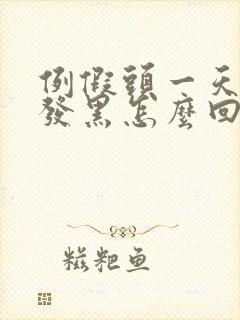 例假頭一天
發黑怎麼回
糍粑鱼